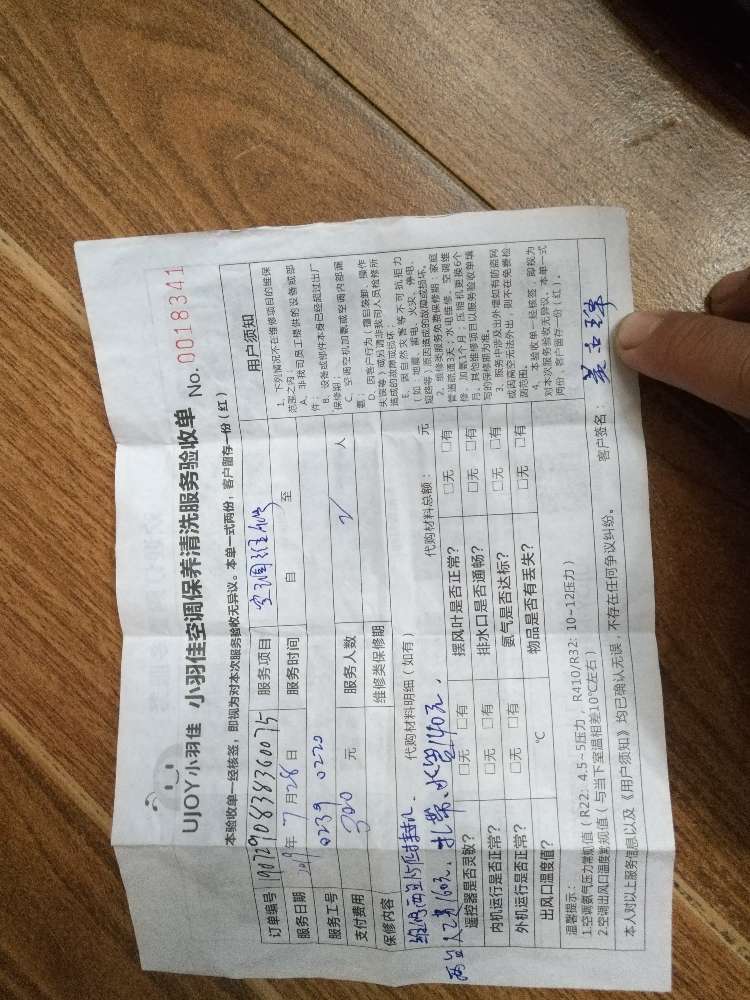 UJOY小羽佳 小羽佳空调保养清洗服务验收单 No. 0018341
本验收单一经核签，即视为对本次服务验收无异议。本单一式两份，客户留存一份（红）
订单编号 1907290838360075 服务项目 空调维修
服务日期 2019年7月28日 服务时间 自 至
服务工号 0239 0220
支付费用 300 元 服务人数 2 人
保修内容 维修类保修期
代购材料明细（如有） 代购材料总额： 元
两台人工费160元、扎带、水管140元。
遥控器是否灵敏？ □无 □有 摆风叶是否正常？ □无 □有
内机运行是否正常？ □无 □有 排水口是否通畅？ □无 □有
外机运行是否正常？ □无 □有 氨气是否达标？ □无 □有
出风口温度值？ ℃ 物品是否有丢失？ □无 □有
温馨提示：
1.空调氨气压力常规值（R22：4.5~5压力，R410/R32：10~12压力）
2.空调出风口温度常规值（与当下室温相差10℃左右）
本人对以上服务信息以及《用户须知》均已确认无误，不存在任何争议纠纷。
客户签名：
用户须知
1、下列情况不在维修项目的维保
范围之内：
A、非我司员工提供的设备或部
件；
B、设备或部件本身已经超过出厂
保修期；
C、空调空机加氨或空调内部漏
氨；
D、因客户行为（擅自装卸、操作
失误等）或另请非我司人员检修所
造成的故障或损坏
E、因自然灾害等不可抗拒力
（如：地震、雷电、火灾、停电、
短路等）原因造成的故障或损坏。
2、维修类服务免费保修期：家庭
管道疏通3天；水电维修、空调维
修、加氨1个月；压缩机更换6个
月；其他维修项目以服务验收单填
写的保修期为准。
3、服务中涉及出外墙如有防盗网
或因高空无法外出，则不在免费检
调范围。
4、本验收单一经核签，即视为
对本次服务验收无异议。本单一式
两份，客户留存一份（红）。